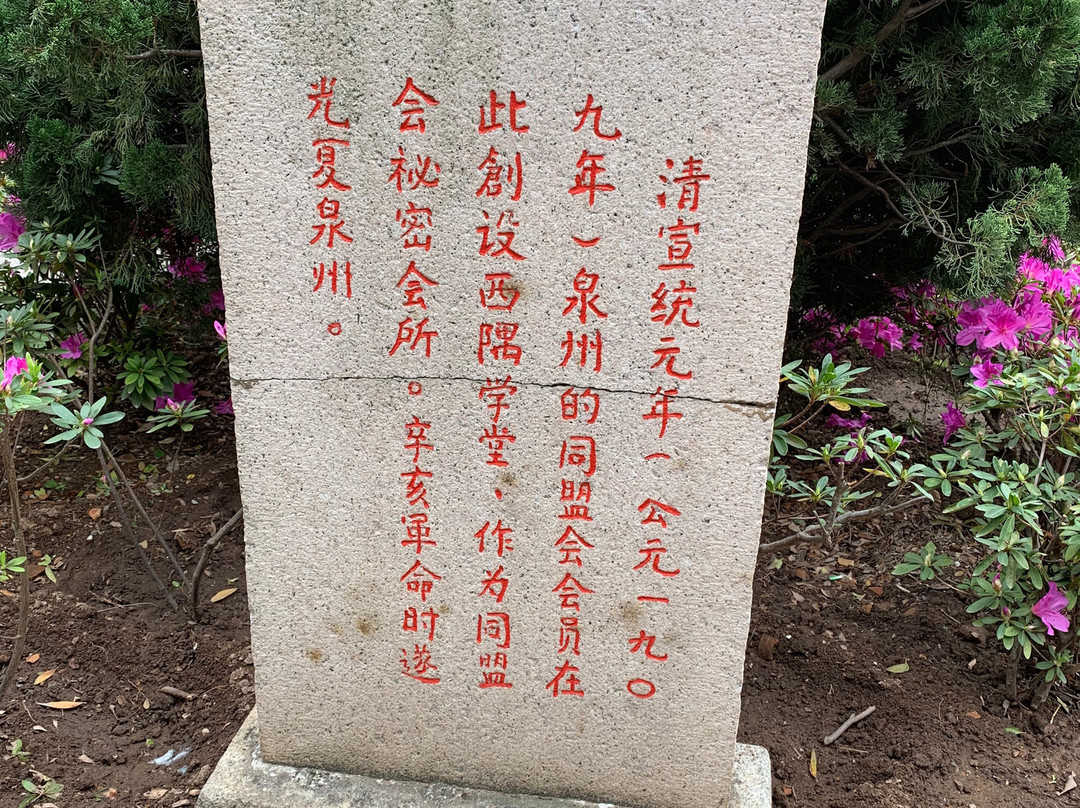 清宣统元年（公元一九〇
九年）泉州的同盟会会员在
此創设西隅学堂、作为同盟
会祕密会所。辛亥軍命时遂
光夏泉州。